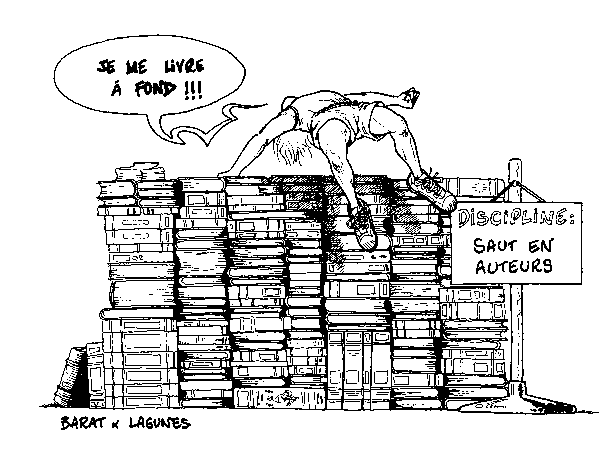 JE ME LIVRE
À FOND !!!
DISCIPLINE:
SAUT EN
AUTEURS
BARAT & LAGUNES